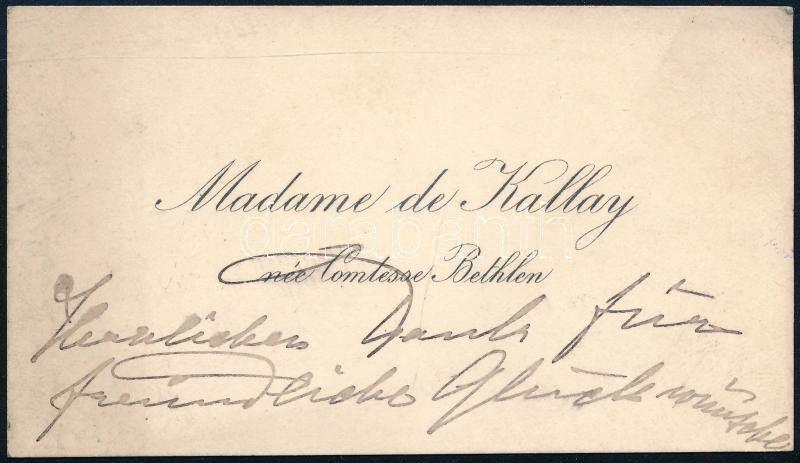 Madame de Kallay
née Comtesse Bethlen
Herzlichen Dank für
freundliche Glückwünsche
darabanth